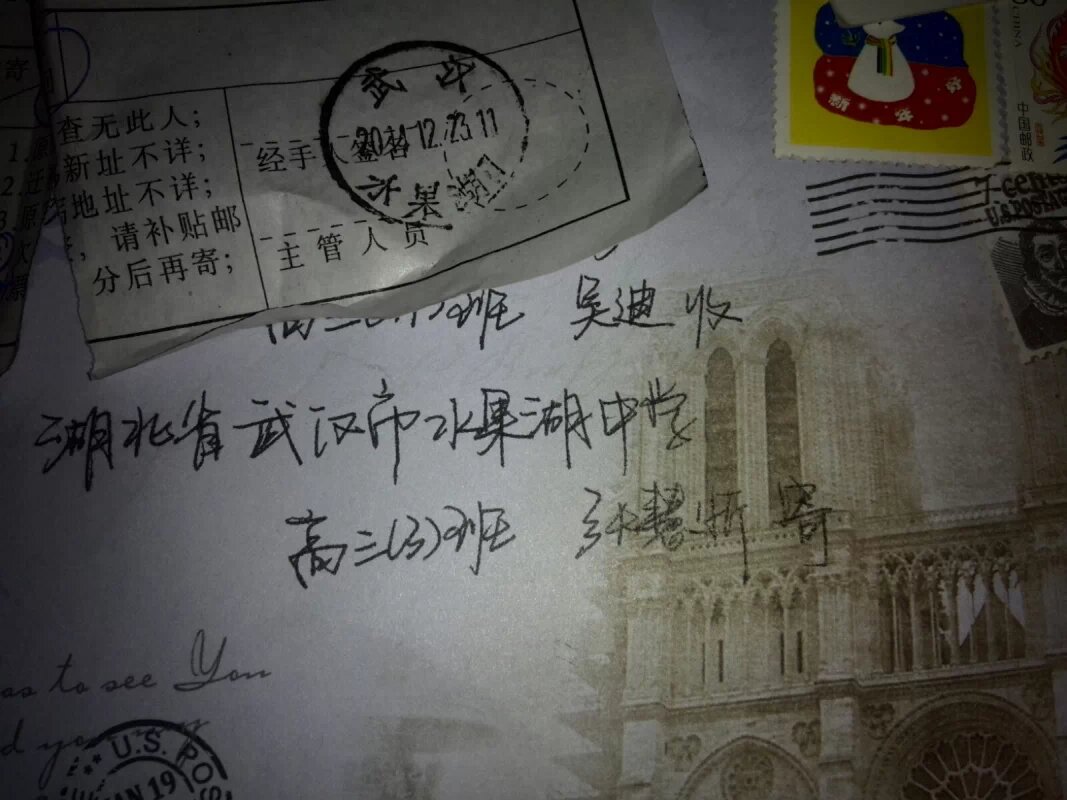 寄
查无此人;
新址不详;
地址不详;
请补贴邮
分后再寄;
经手
主管人员
武汉
2011.12.23.11
水果湖
中国邮政
U.S.POSTA
班 吴迪 收
湖北省武汉市水果湖中学
高三(3)班 寄
as to see You
U.S. POS
AN 19